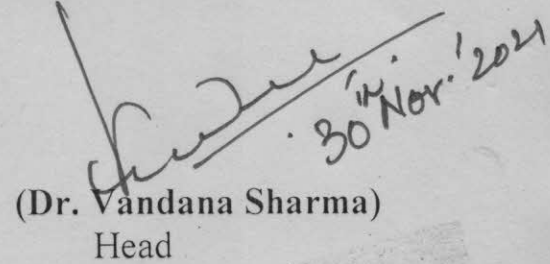 30th Nov.' 2021
(Dr. Vandana Sharma)
Head